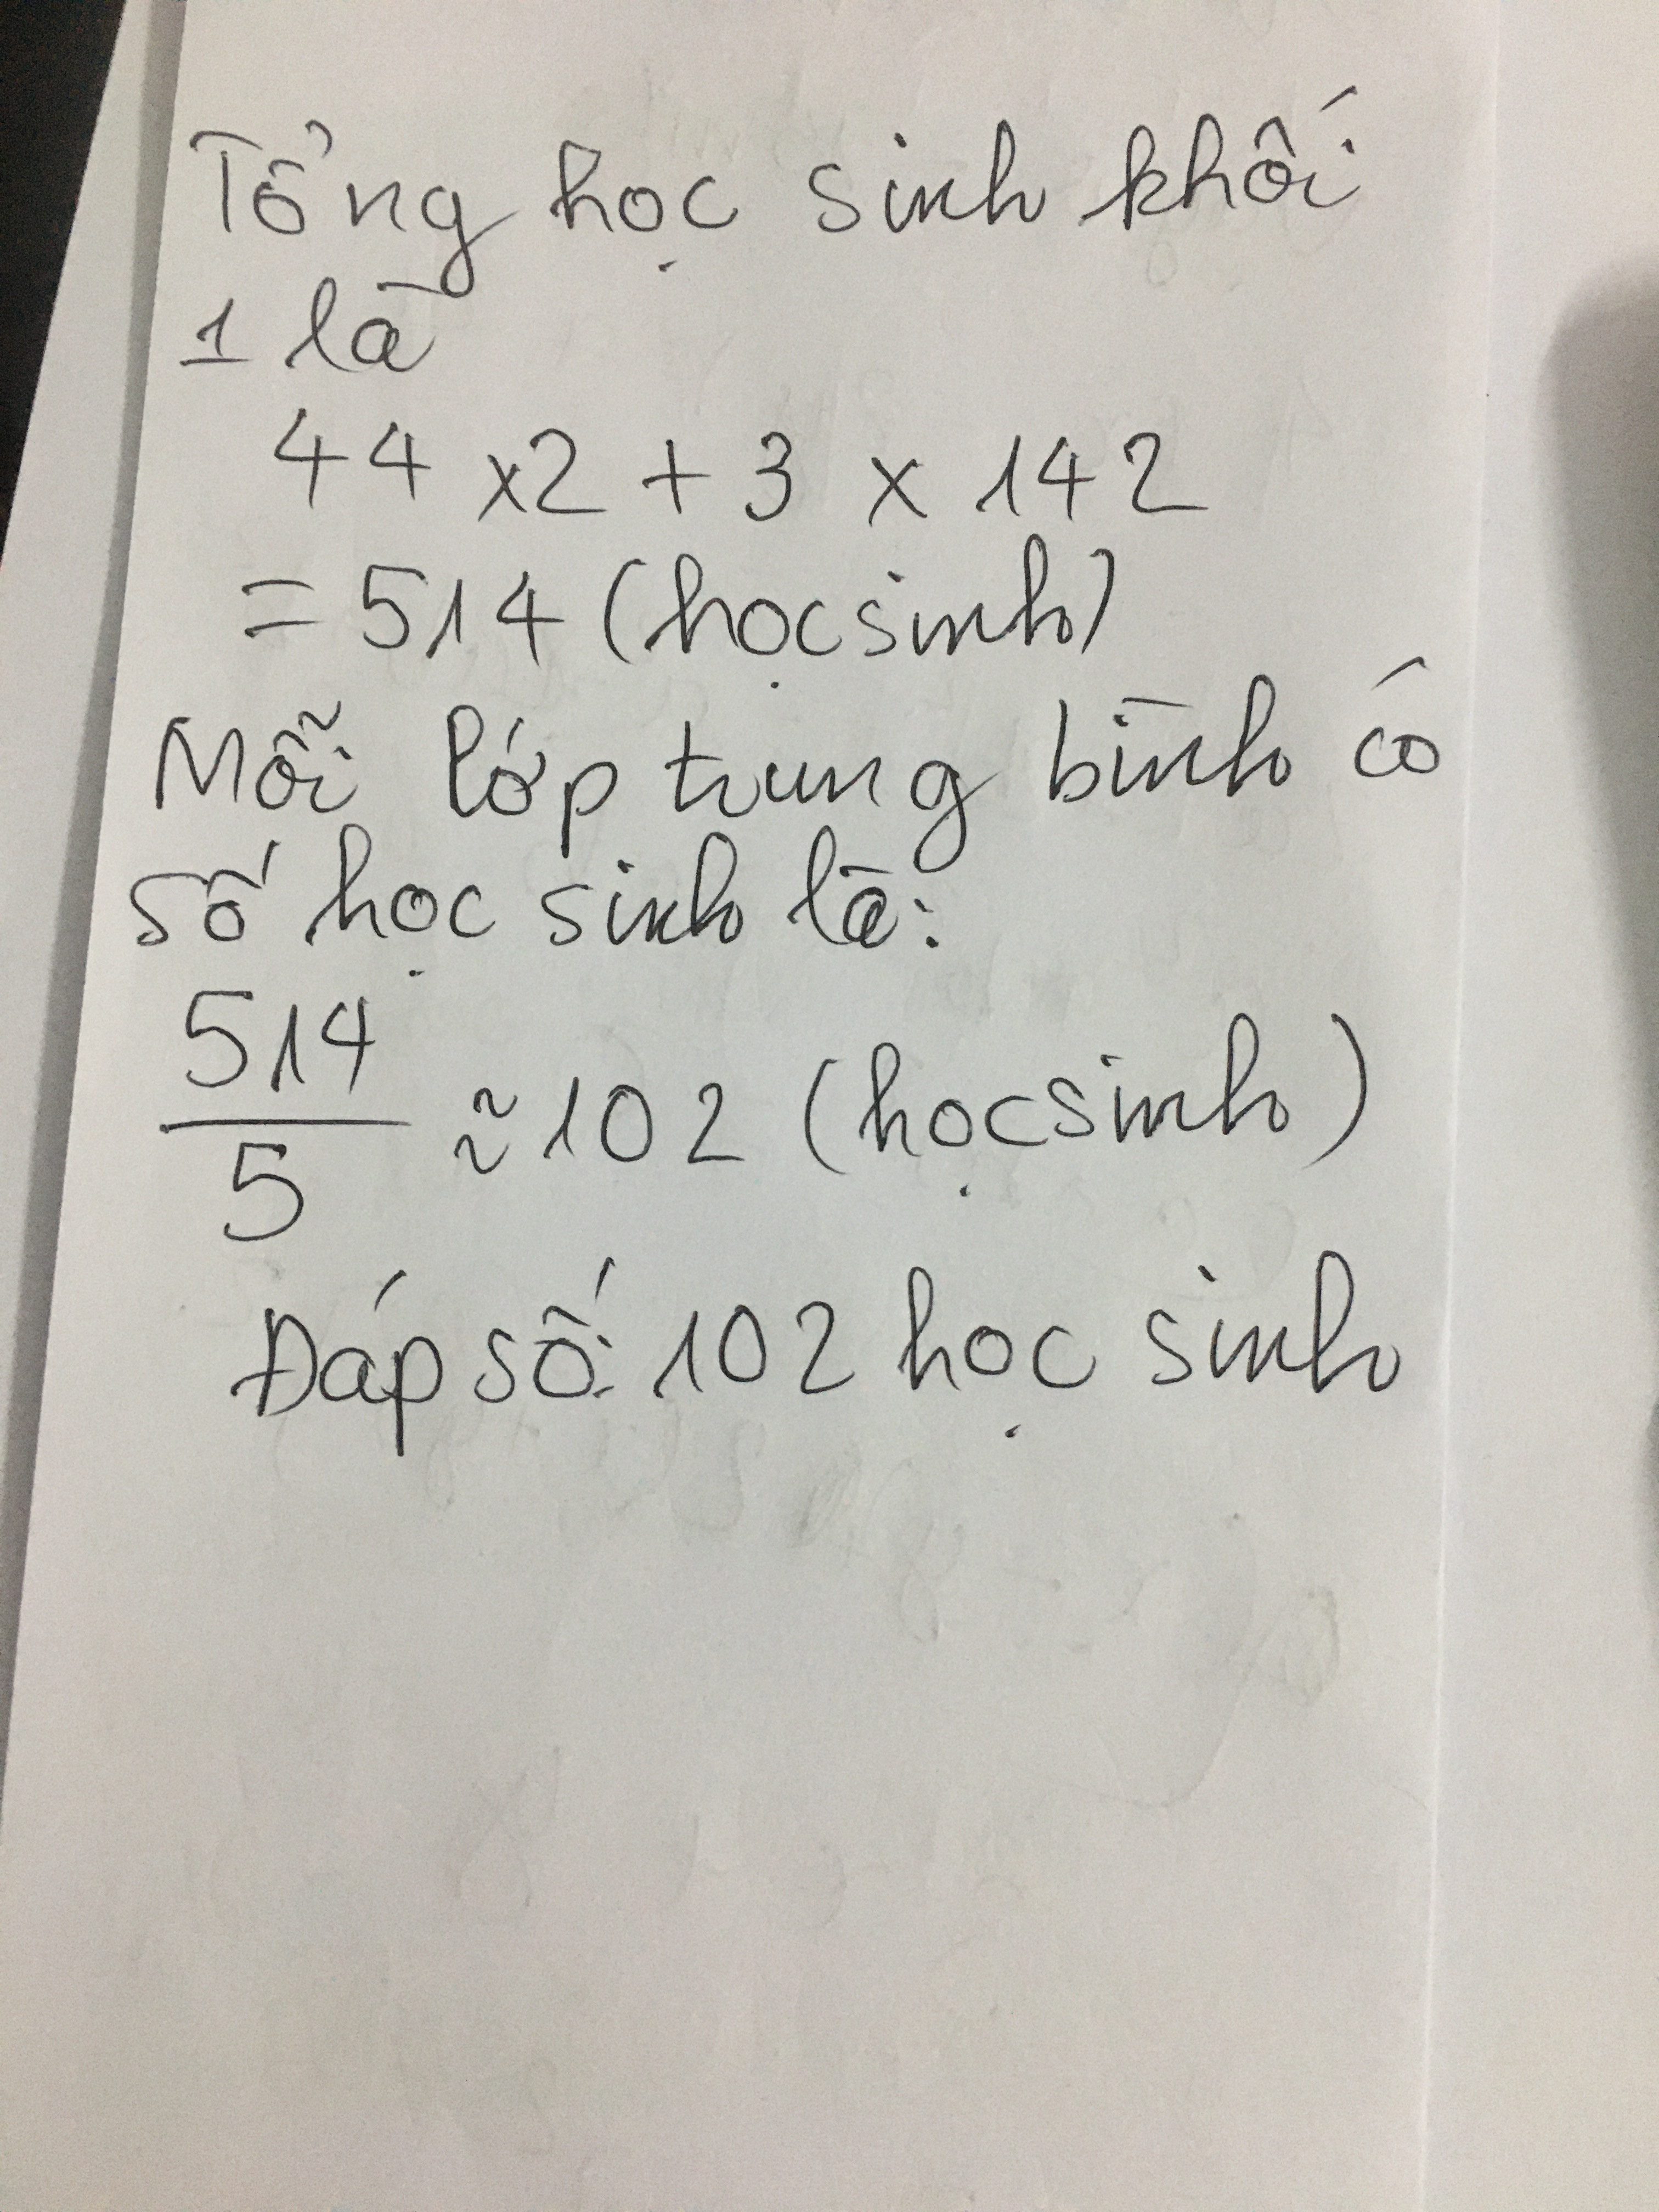 Tổng học sinh khối
1 là
44 x2 + 3 x 142
= 514 (học sinh)
Mỗi lớp trung bình có
số học sinh là:
514
5
≈ 102 (học sinh)
Đáp số: 102 học sinh